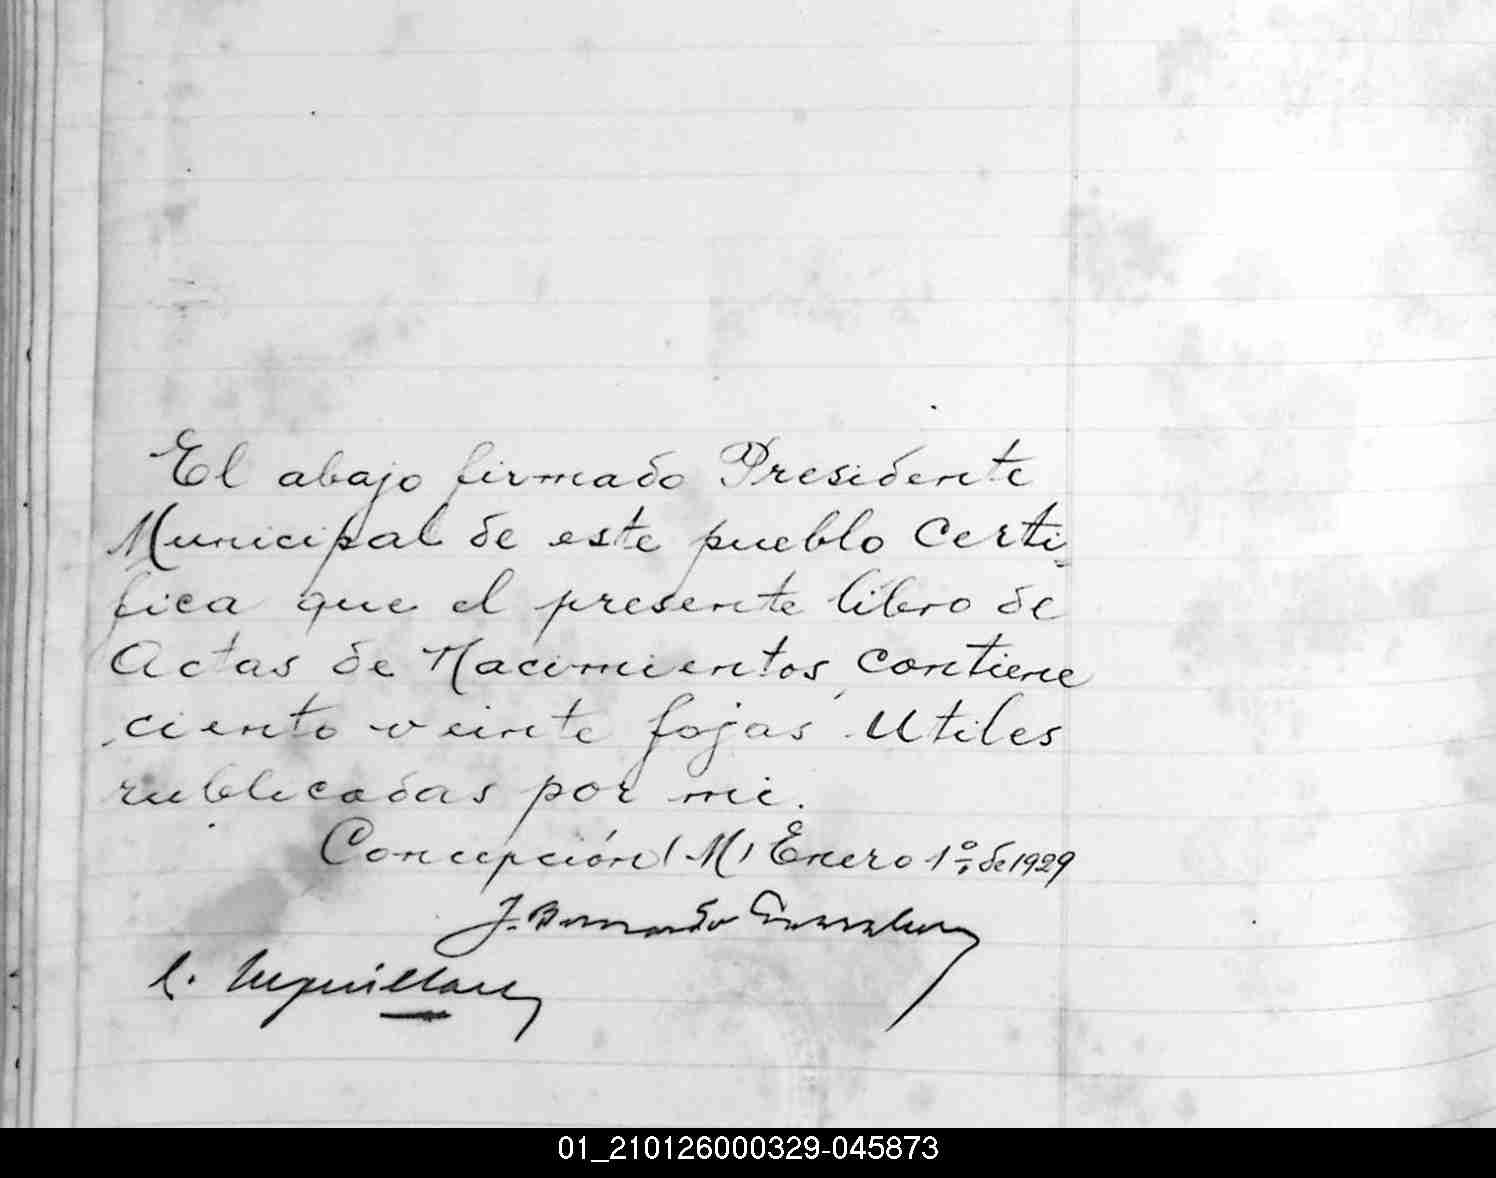 El abajo firmado Presidente
Municipal de este pueblo Certi-
fica que el presente libro de
Actas de Nacimientos, Contiene
ciento veinte fojas Utiles
rublicadas por mi.
Concepción (M) Enero 1º de 1929
J. Bernardo
01_210126000329-045873